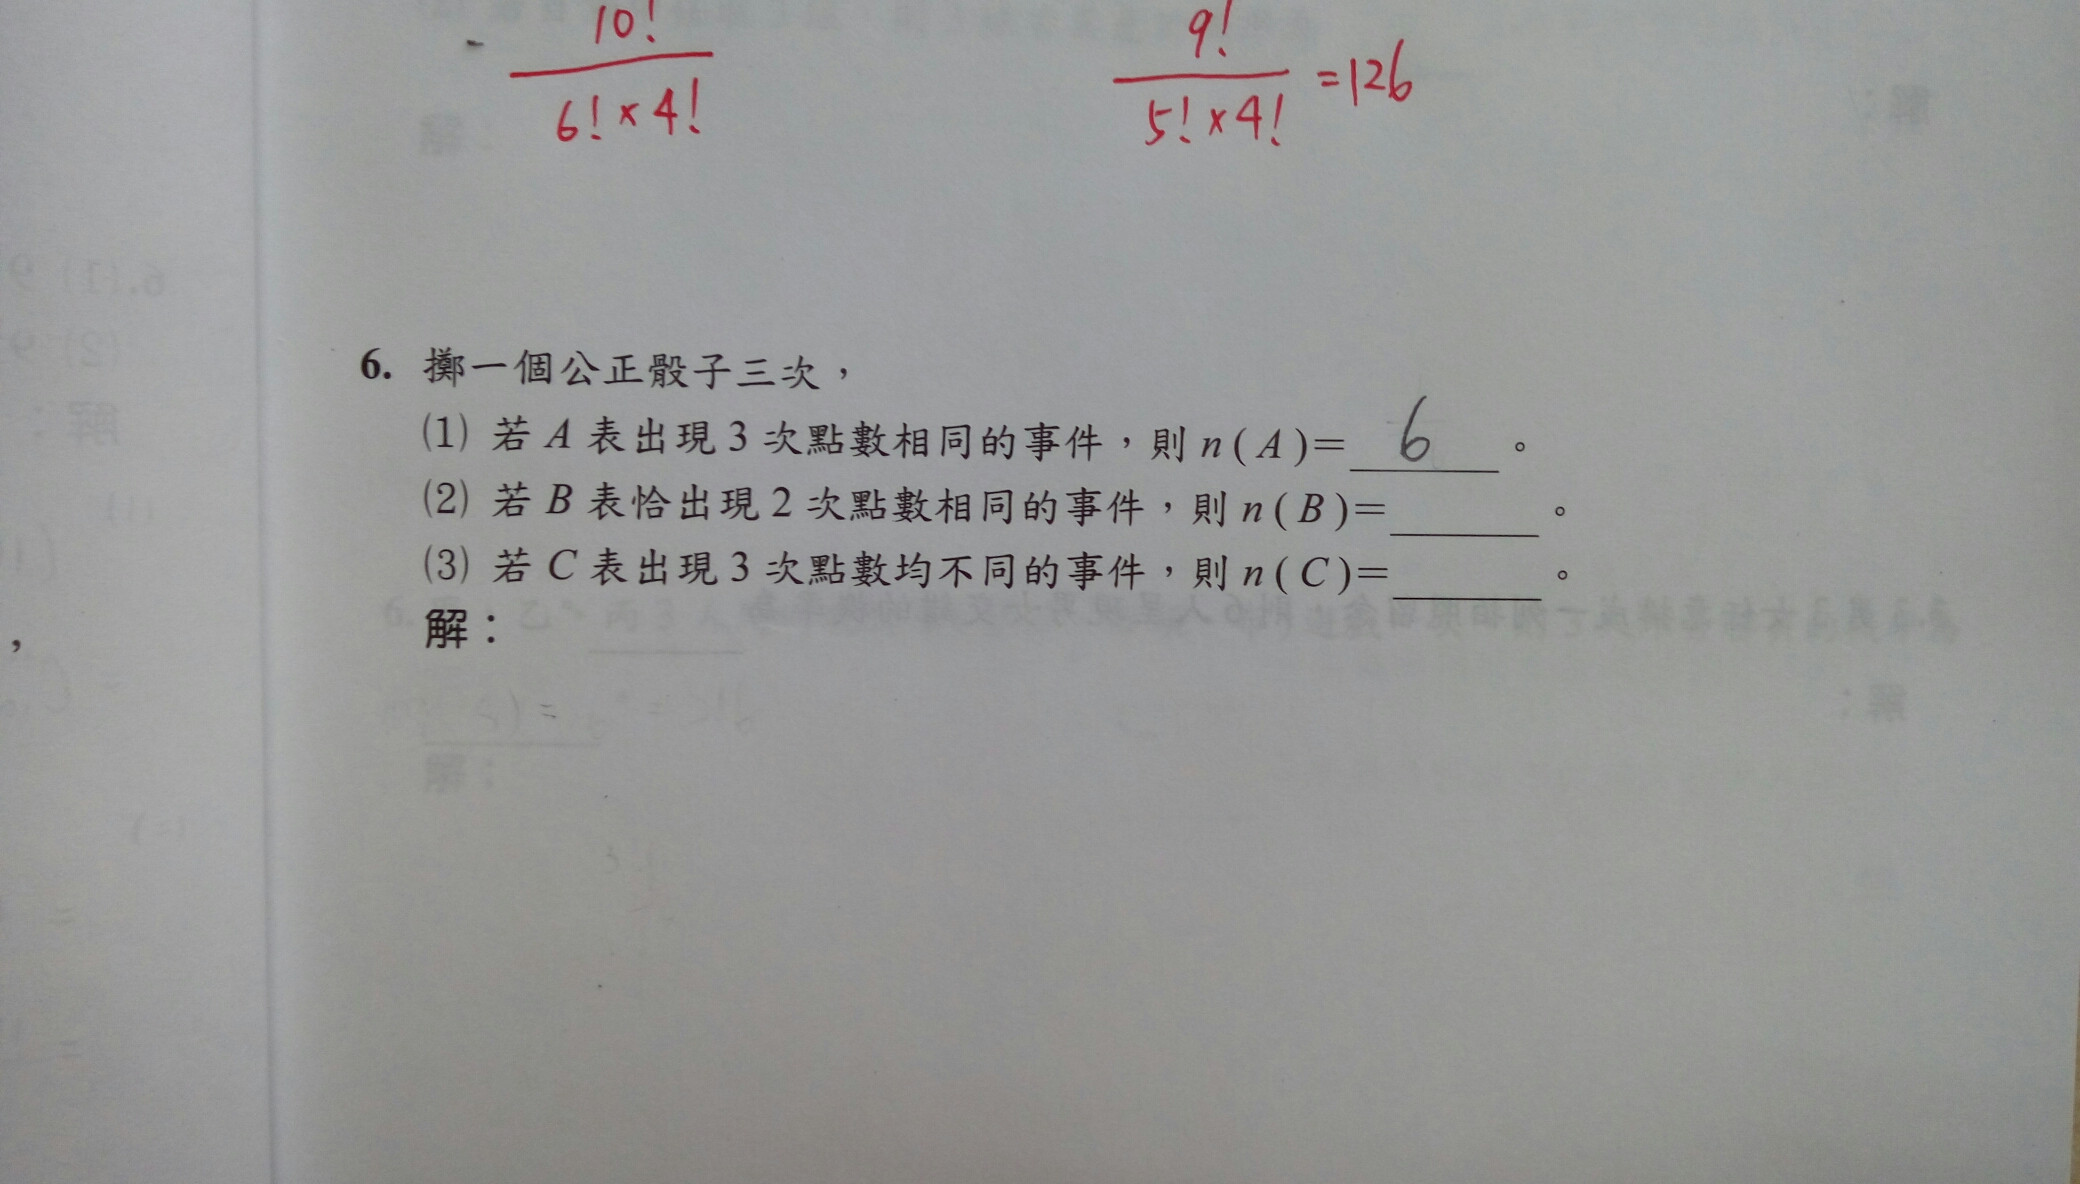 10! / 6! × 4!
9! / 5! × 4! = 126
6. 擲一個公正骰子三次，
(1) 若 A 表出現 3 次點數相同的事件，則 n ( A )= 6 。
(2) 若 B 表恰出現 2 次點數相同的事件，則 n ( B )=______。
(3) 若 C 表出現 3 次點數均不同的事件，則 n ( C )=______。
解：